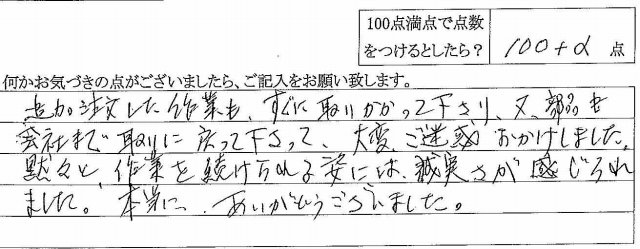 100点満点で点数
をつけるとしたら？ 100+α 点
何かお気づきの点がございましたら、ご記入をお願い致します。
追加注文した作業も、すぐに取りかかって下さり、又、部品を
会社まで取りに戻って下さって、大変ご迷惑おかけしました。
黙々と、作業を続けられる姿には、誠実さが感じられ
ました。本当に、ありがとうございました。